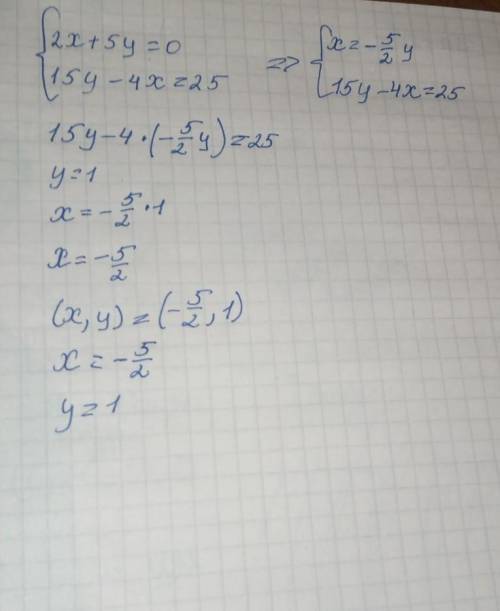 {2x+5y=0 => {x=-5/2 y
{15y-4x=25 {15y-4x=25
15y-4·(-5/2 y)=25
y=1
x=-5/2·1
x=-5/2
(x,y)=(-5/2,1)
x=-5/2
y=1